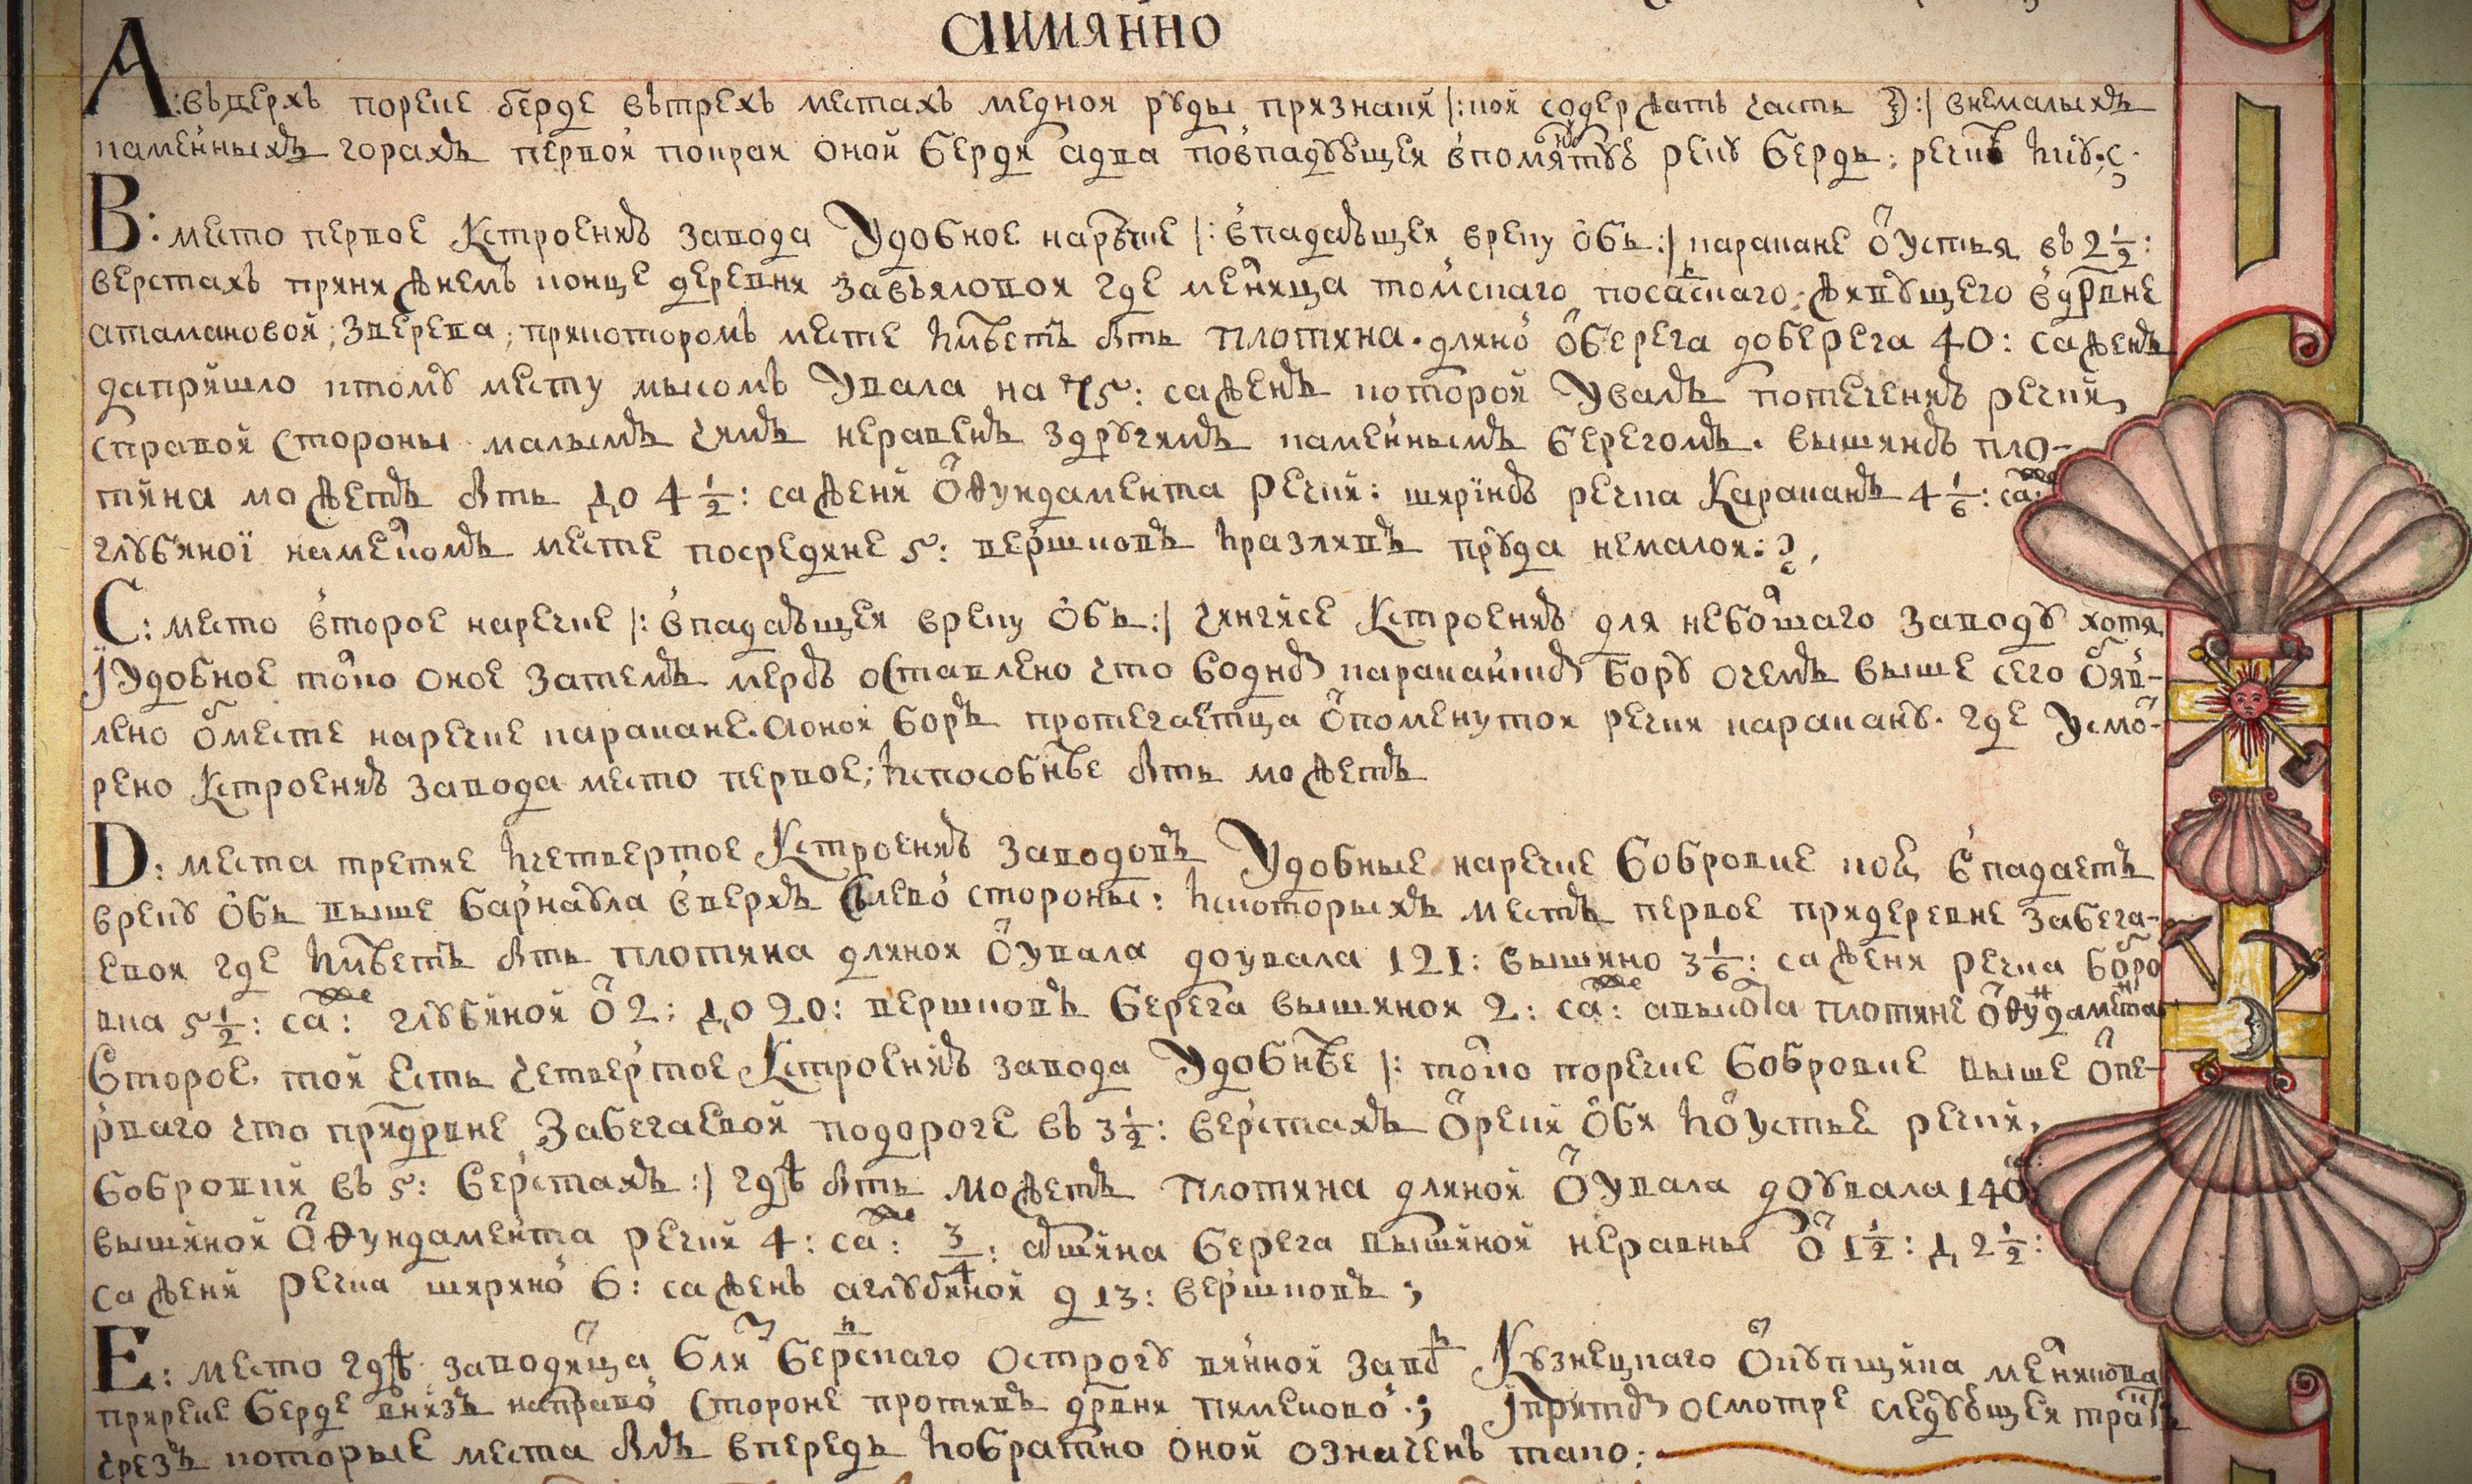 АИМЯННО
А: въверхъ пореке берде вътрехъ местахъ медной руды признаки /: кой содержатъ часть :/ внемалыхъ
каменныхъ горахъ первой покрая оной Берди адва повпадующей впомятую реку Бердь; речкѣ Ику:
В: место первое Кстроенію завода Удобное наречке /: впадающей вреку Обь :/ каракане О устья въ 2 1/2:
верстахъ прини жнемъ конце деревни завьяловой где менница томскаго посацкаго живущего вдрвне
атамановой; Зверева; прикоторомъ месте имѣетъ быть плотина. длино О берега доберега 40: саженъ
дапришло ктому месту мысомъ Увала на 75: саженъ которой Увалъ потечению речки,
справой стороны малымъ чимъ неравенъ здругимъ каменнымъ берегомъ. вышиною пло-
тина можетъ быть до 4 1/2: сажени О фундамента речки: шириною речка Караканъ 4 1/6: са:
глубиной намелкомъ месте посредине 5: вершковъ иразливъ пруда немалой:
С: место второе наречке /: впадающей вреку Обь :/ чингисе Кстроенію для небошаго заводу хотя
IУдобное токо оное затемъ меръ оставлено что водною караканскою бору очемъ выше сего Обяв-
лено Оместе наречке каракане. аоной боръ протегаетца Опоменутой речки каракану. где Усмо-
рено Кстроенію завода место первое; испособнѣе быть можетъ
D: места третие ичетвертое Кстроенію заводовъ Удобные наречке Бобровке кой впадаетъ
вреку Обь выше барнаула вверхъ Слево стороны: искоторыхъ местъ первое придеревне забега-
евой где имѣетъ быть плотина длиной Оувала доувала 121: вышино 3 1/6: сажени речка бобро
вка 5 1/2: са: глубиной О 2: до 20: вершковъ берега вышиной 2: са: авысота плотине О фундамента
Второе. той есть четвертое Кстроенію завода Удобнѣе /: токо поречке бобровке выше Опе-
рваго что придрвне Забегаевой подороге въ 3 1/2: верстахъ О реки Оби иО устье речки,
бобровки въ 5: верстахъ :/ гдѣ быть можетъ плотина длиной О увала доувала 140
вышиной О фундамента речки 4: са: 3/4: аршина берега вышиной неравны О 1 1/2: д 2 1/2:
сажени речка ширино 6: сажень аглубиной д 13: вершковъ;
Е: место гдѣ. заводица близ Берскаго острогу винной заво Кузнецкаго Окупщика менникова
приреке берде внизъ направо стороне противъ дрвни пименово; Iпритою осмотре следующей тра
чрезъ которые места былъ впередъ иобратно оной означенъ тако: